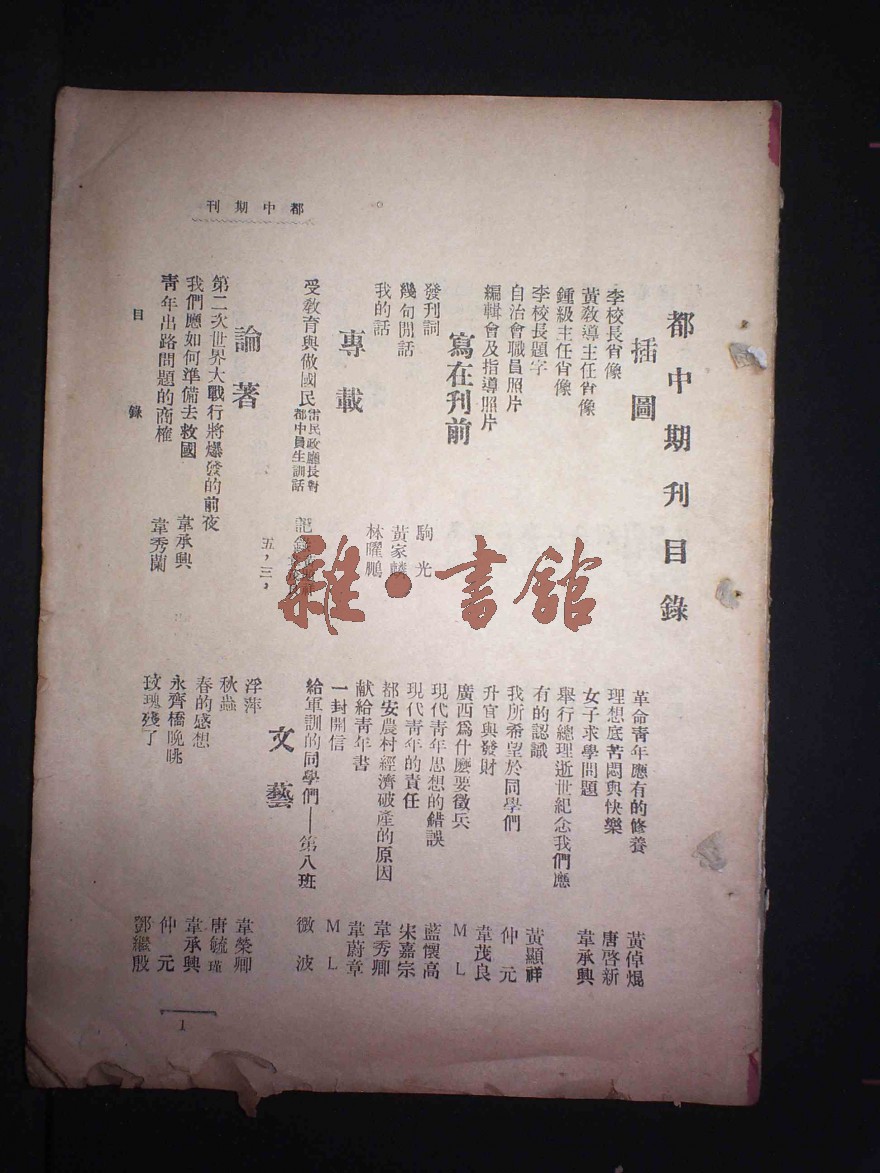 都中期刊
都中期刊目錄
插圖
李校長肖像
黃敎導主任肖像
鍾級主任肖像
李校長題字
自治會職員照片
編輯會及指導照片
寫在刊前
發刊詞 駒光
幾句閒話 黃家麟
我的話 林曜鵬
專載
受敎育與做國民 雷民政廳長對都中員生訓話 記
五，三，
論著
第二次世界大戰行將爆發的前夜
我們應如何準備去救國 韋承興
靑年出路問題的商榷 韋秀蘭
革命靑年應有的修養 黃倬焜
理想底苦悶與快樂 唐啓新
女子求學問題 韋承興
舉行總理逝世紀念我們應
有的認識 黃顯祥
我所希望於同學們 仲元
升官與發財 韋茂良
廣西爲什麼要徵兵 ML
現代靑年思想的錯誤 藍懷高
現代靑年的責任 宋嘉宗
都安農村經濟破產的原因 韋秀卿
献給靑年書 韋蔚章
一封開信 ML
給軍訓的同學們——第八班 微波
文藝
浮萍 韋榮卿
秋蟲 唐毓瑾
春的感想 韋承興
永齊橋晚眺 仲元
玫瑰殘了 鄧繼殷
目錄
1
雜·書館